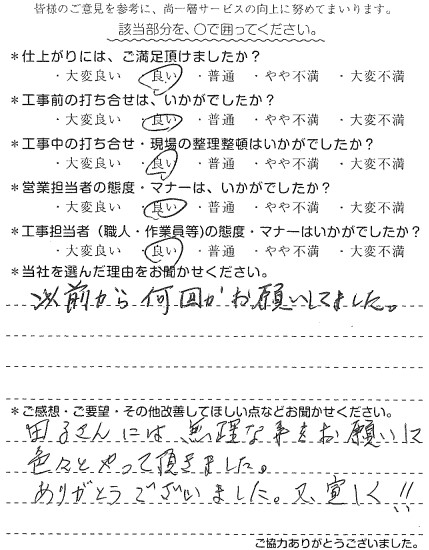 皆様のご意見を参考に、尚一層サービスの向上に努めてまいります。
該当部分を、○で囲ってください。
*仕上がりには、ご満足頂けましたか?
・大変良い ・良い ・普通 ・やや不満 ・大変不満
*工事前の打ち合せは、いかがでしたか?
・大変良い ・良い ・普通 ・やや不満 ・大変不満
*工事中の打ち合せ・現場の整理整頓はいかがでしたか?
・大変良い ・良い ・普通 ・やや不満 ・大変不満
*営業担当者の態度・マナーは、いかがでしたか?
・大変良い ・良い ・普通 ・やや不満 ・大変不満
*工事担当者(職人・作業員等)の態度・マナーはいかがでしたか?
・大変良い ・良い ・普通 ・やや不満 ・大変不満
*当社を選んだ理由をお聞かせください。
以前から何回かお願いしてました。
*ご感想・ご要望・その他改善してほしい点などお聞かせください。
田子さんには無理な事をお願いして
色々とやって頂きました。
ありがとうございました。又、宜しく!!
ご協力ありがとうございました。